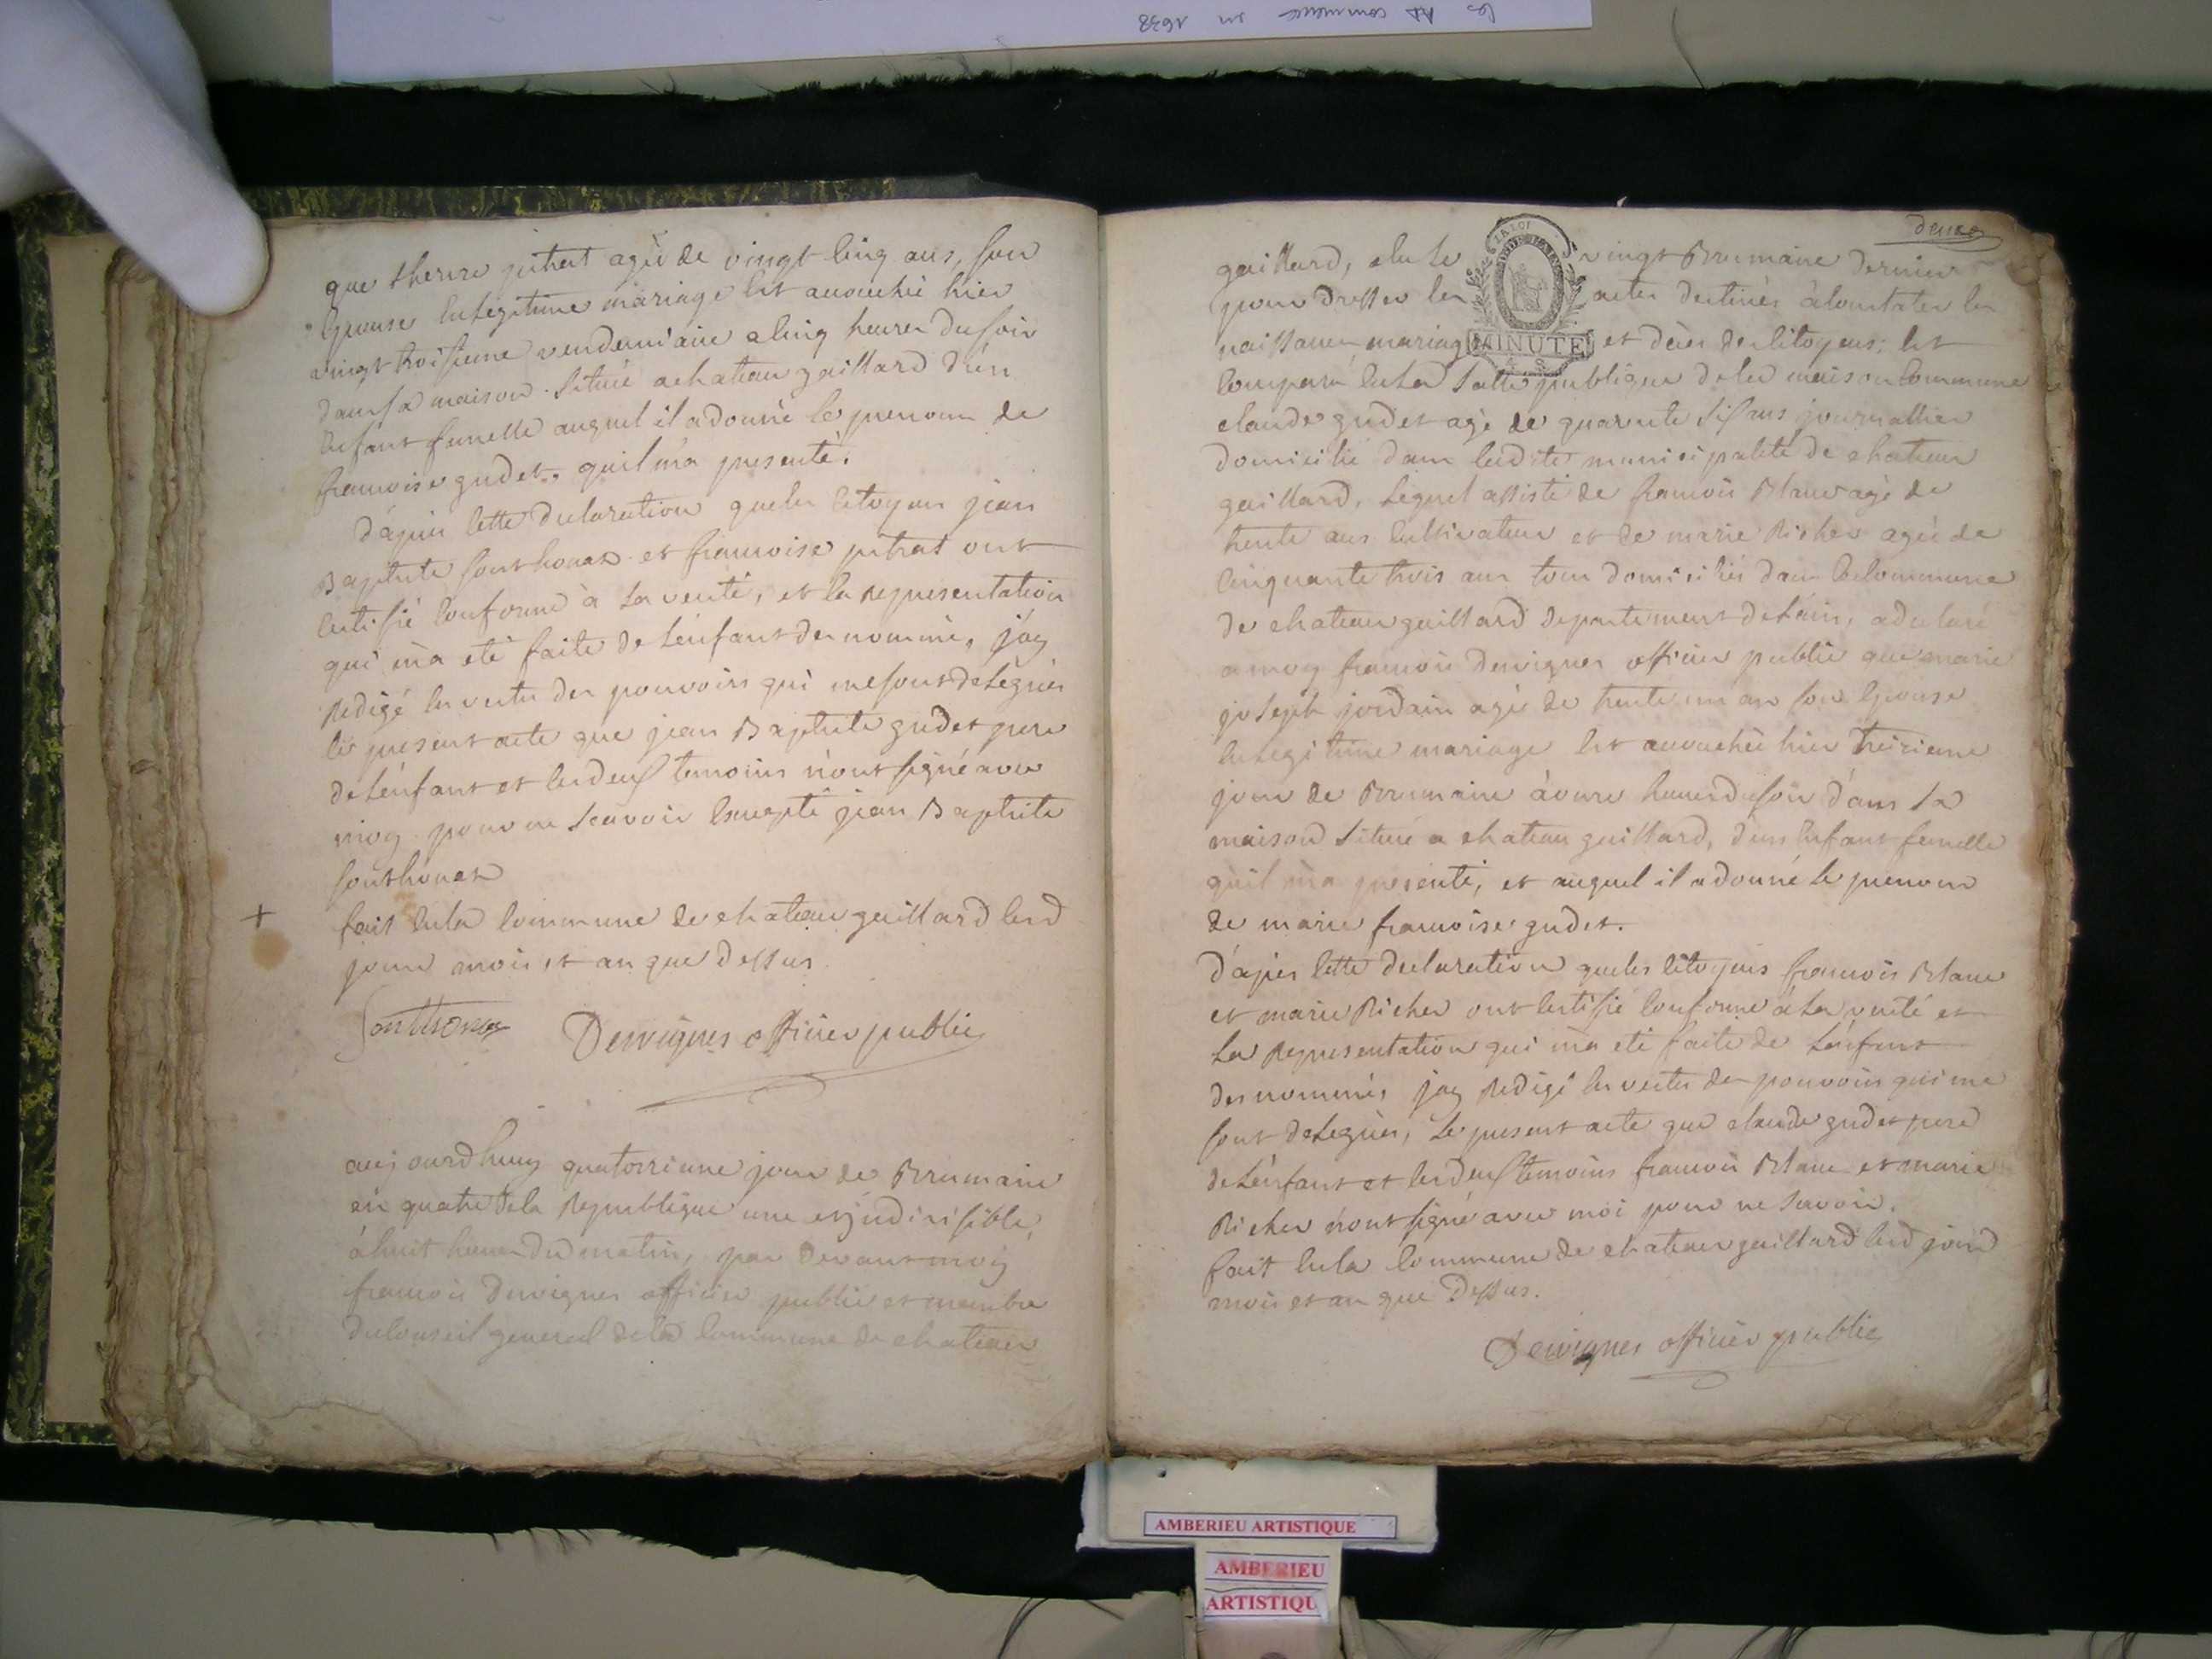 les Ad commence en 1638
que therese pitrat agée de vingt cinq ans, son
Epouse en legitime mariage Est accouchée hier
vingt troisieme vendemiaire a cinq heures du soir
dans sa maison situeé a chateau gaillard d'un
Enfant femelle auquel il a donné le prenom de
francoise gudet, quil m'a presenté.
d'apres cette declaration que les citoyens jean
Baptiste Southonax et francoise pitrat ont
certifié conforme à la verité, et la representation
qui m'a eté faite de l'enfant denommé, j'ay
Redigé en vertu des pouvoirs qui me sont delegués
le present acte que jean Baptiste gudet pere
de l'enfant et les deux temoins n'ont signé avec
moy pour ne scavoir Excepté jean Baptiste
Southonax
+ fait en la commune de chateau gaillard lesd
jour mois et an que dessus
Sonthonax Desvignes officier public
aujourdhuy quatorzieme jour de Brumaire
an quatre de la Republique une et indivisible,
à huit heures du matin, par devant moy
francois desvignes officier public et membre
du Conseil general de la Commune de chateau
deux
gaillard, elu le vingt Brumaire dernier
pour dresser les actes destinés à constater les
naissances mariages et décès des Citoyens; Est
LA LOI
MINUTE
Comparu En la salle publique de la maison Commune
claude gudet agé de quarente six ans journallier
domicilié dans ladite municipalité de chateau
gaillard, lequel assisté de francois Blanc agé de
trente ans cultivateur et de marie Richer agée de
cinquante trois ans tous domiciliés dans la commune
de chateau gaillard departement de l'ain, a declaré
a moy francois desvignes officier public que marie
joseph jordain agée de trente un an son Epouse
en legitime mariage Est accouchée hier treizieme
jour de Brumaire à onze heures du soir d'ans la
maison situeé a chateau gaillard, d'un Enfant femelle
qu'il m'a presenté, et auquel il a donné le prenom
de marie francoise gudet.
d'apres cette declaration que les citoyens francois Blanc
et marie Richer ont certifié conforme à la verité et
la Representation qui m'a eté faite de l'enfant
denommés j'ay Redigé en vertu des pouvoirs qui me
sont delegués, le present acte que claude gudet pere
de l'enfant et les deux temoins francois Blanc et marie
Richer n'ont signé avec moi pour ne savoir.
fait en la Commune de chateau gaillard lesd jour
mois et an que Dessus.
Desvignes officier public
AMBERIEU ARTISTIQUE
AMBERIEU
ARTISTIQU